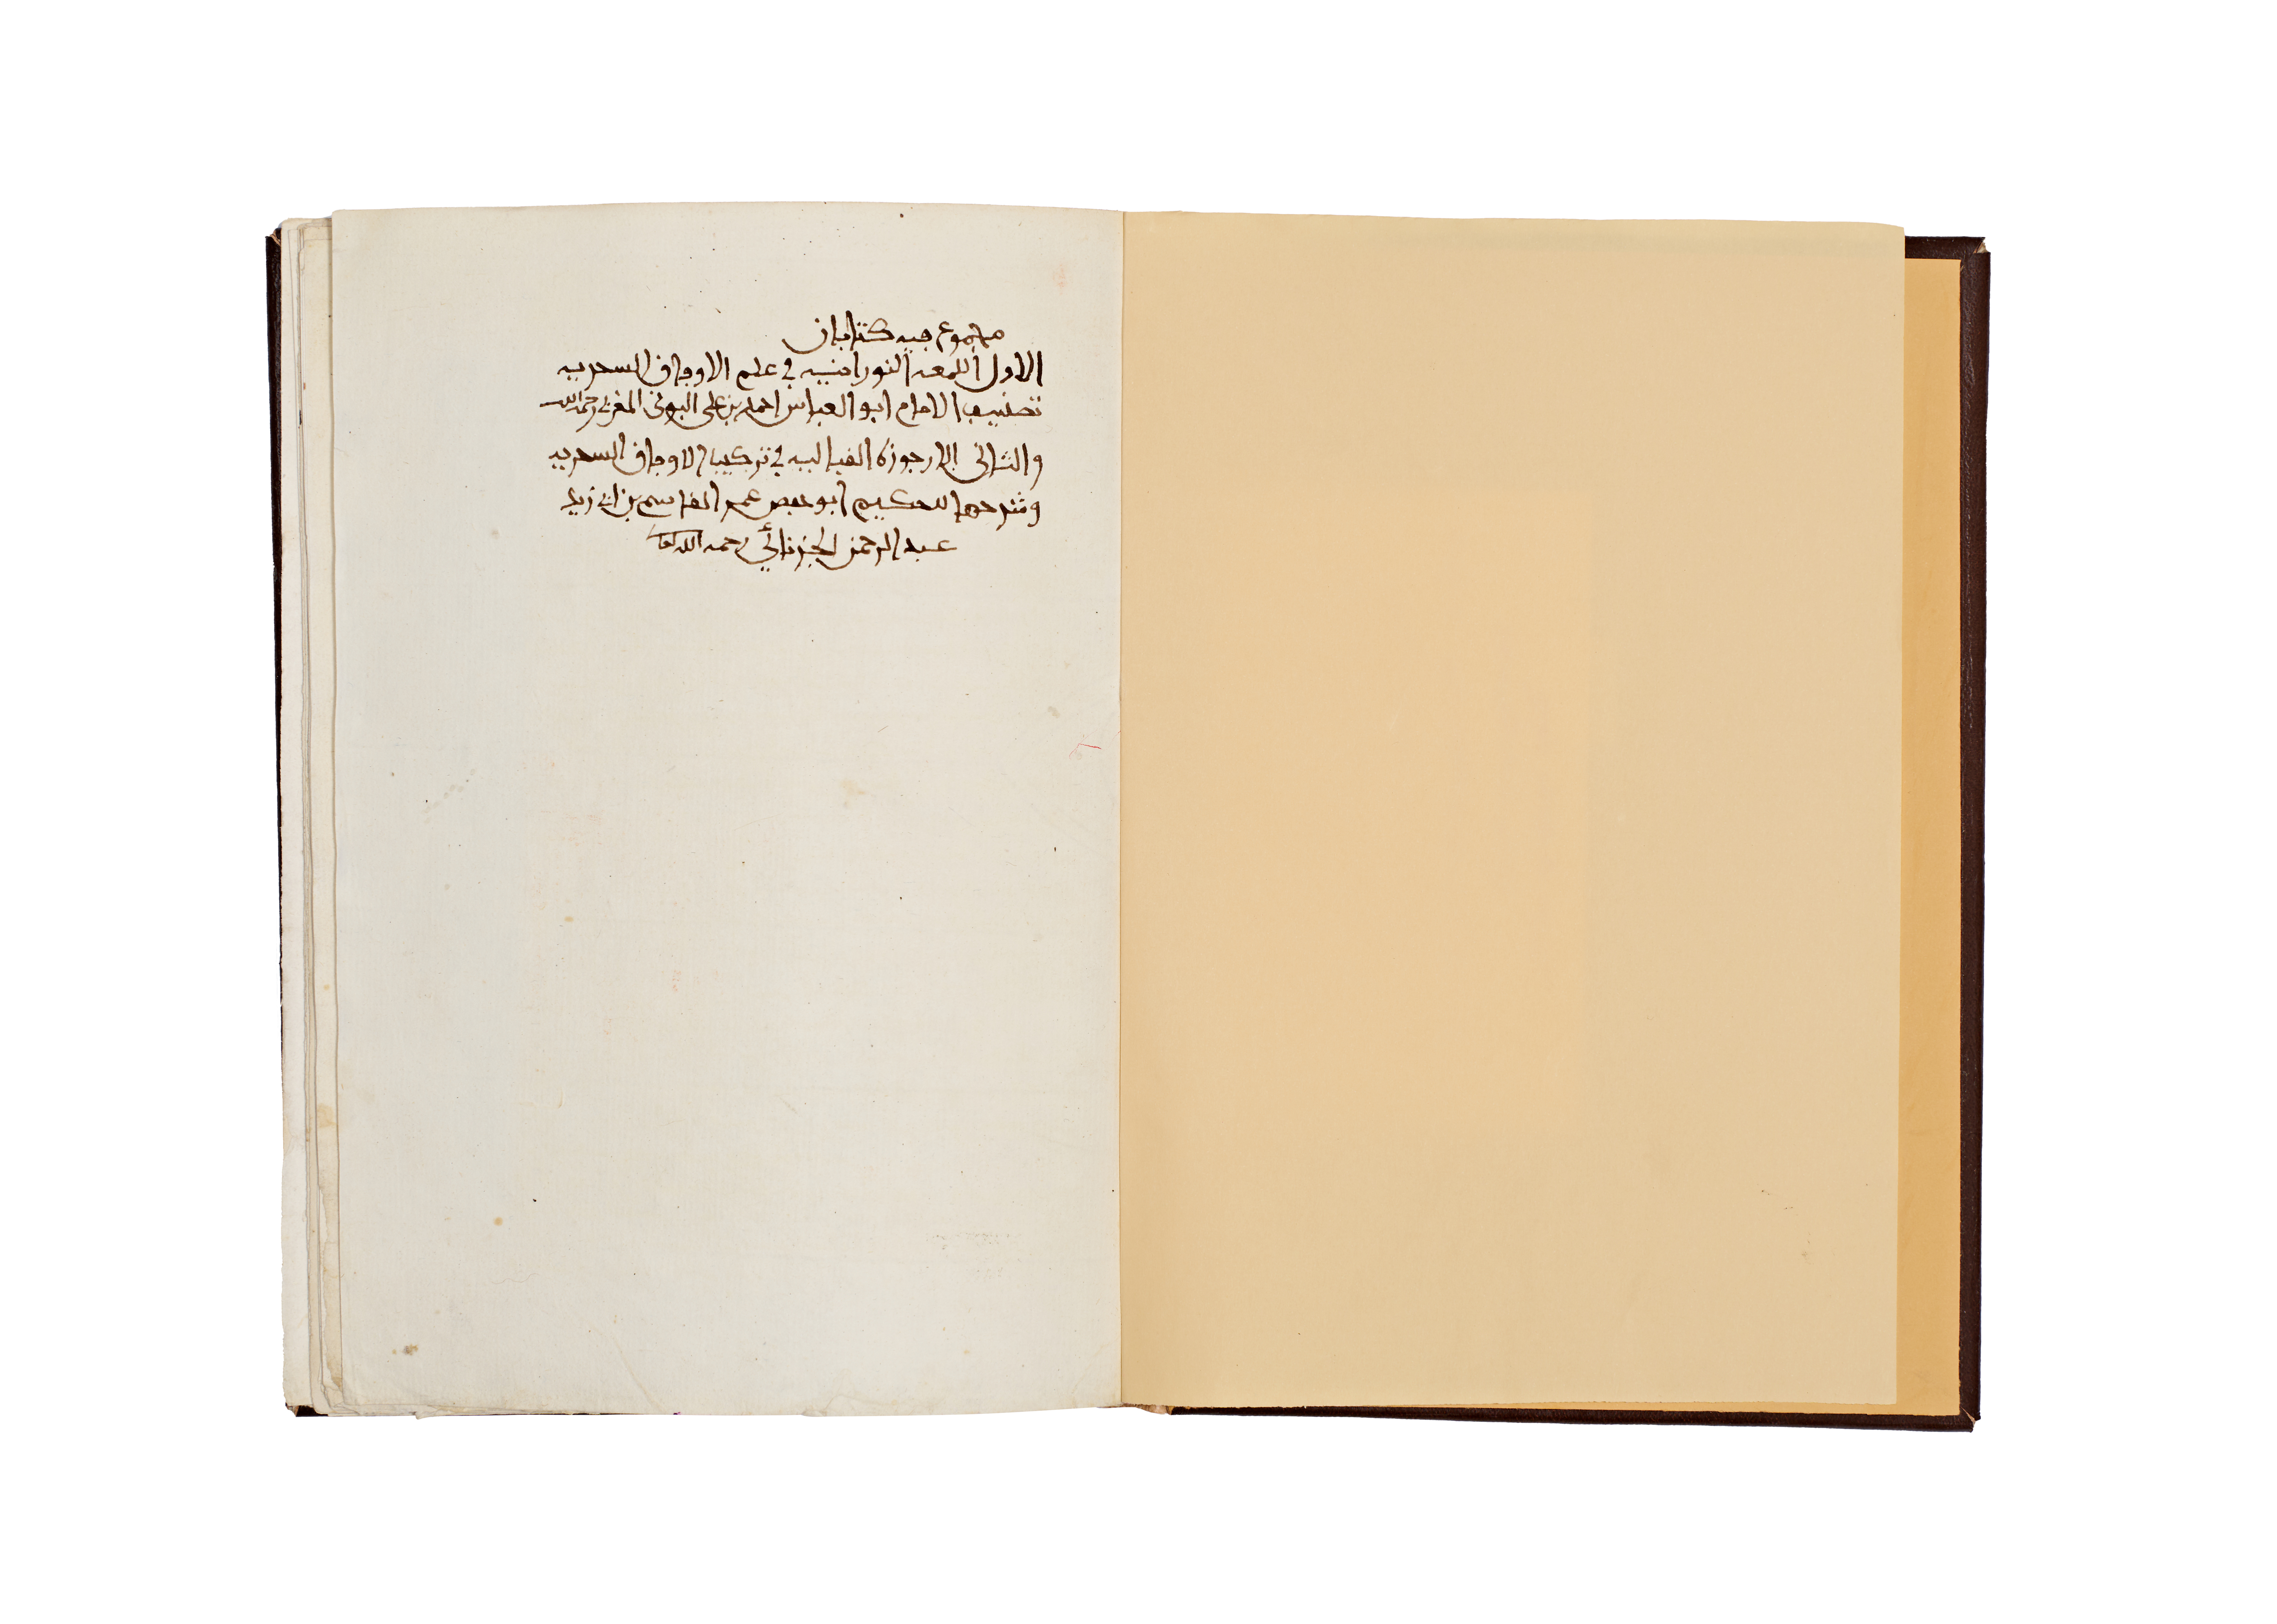 مجموع فيه كتابان
الاول اللمعه النورانيه في علم الاوفاق السحريه
تصنيف الامام ابو العباس احمد بن على البونى المغربي رحمه الله
والثانى الارجوزه الغبا لبيه في تركيب الاوفاق السحريه
وشرحها للحكيم ابو حفص عمر القاسم بن ابي زيد
عبد الرحمن الجزنائي رحمه الله تعا